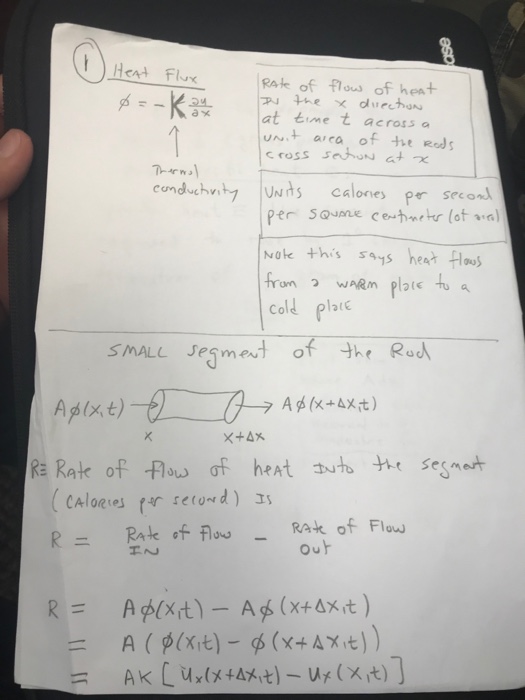 1 Heat Flux
φ = -K ∂u/∂x
↑
Thermal
conductivity
Rate of flow of heat
IN the x direction
at time t across a
unit area of the Rods
cross section at x
Units calories per second
per square centimeter (of area)
Note this says heat flows
from a warm place to a
cold place
SMALL segment of the Rod
Aφ(x,t) → Aφ(x+Δx,t)
x x+Δx
R≡ Rate of flow of heat Into the segment
(calories per second) Is
R = Rate of flow IN - Rate of Flow Out
R = Aφ(x,t) - Aφ(x+Δx,t)
= A(φ(x,t) - φ(x+Δx,t))
= AK[Ux(x+Δx,t) - Ux(x,t)]